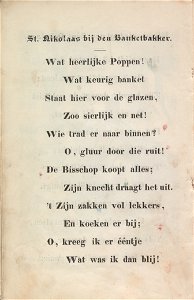 St. Nikolaas bij den Banketbakker.
Wat heerlijke Poppen!
Wat keurig banket
Staat hier voor de glazen,
Zoo sierlijk en net!
Wie trad er naar binnen?
O, gluur door die ruit!
De Bisschop koopt alles;
Zijn knecht draagt het uit.
't Zijn zakken vol lekkers,
En koeken er bij;
O, kreeg ik er ééntje
Wat was ik dan blij!